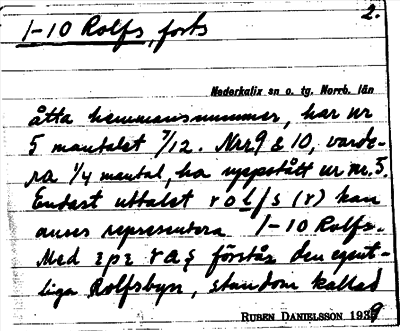 2.
1-10 Rolfs, forts
Nederkalix sn o. tg. Norrb. län
åtta hemmansnummer, har nr
5 mantalet 7/12. Nr 9 & 10, varde-
ra 1/4 mantal, ha uppstått ur nr. 5.
Endast uttalet rolfs (r) kan
anses representera 1-10 Rolfs.
Med förstås den egent-
liga Rolfsbyn, stundom kallad
RUBEN DANIELSSON 1939